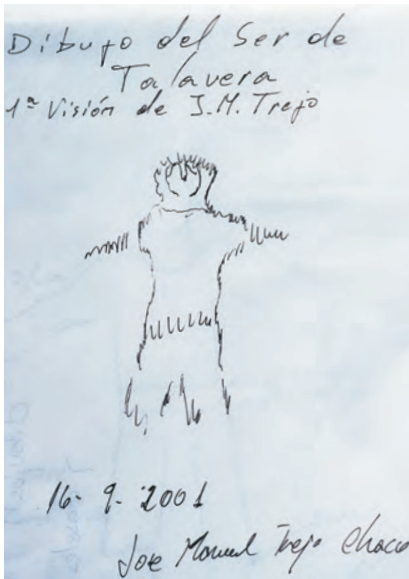 Dibujo del Ser de
Talavera
1ª Visión de J.M. Trejo
16-9-2001
Jose Manuel Trejo Chacó